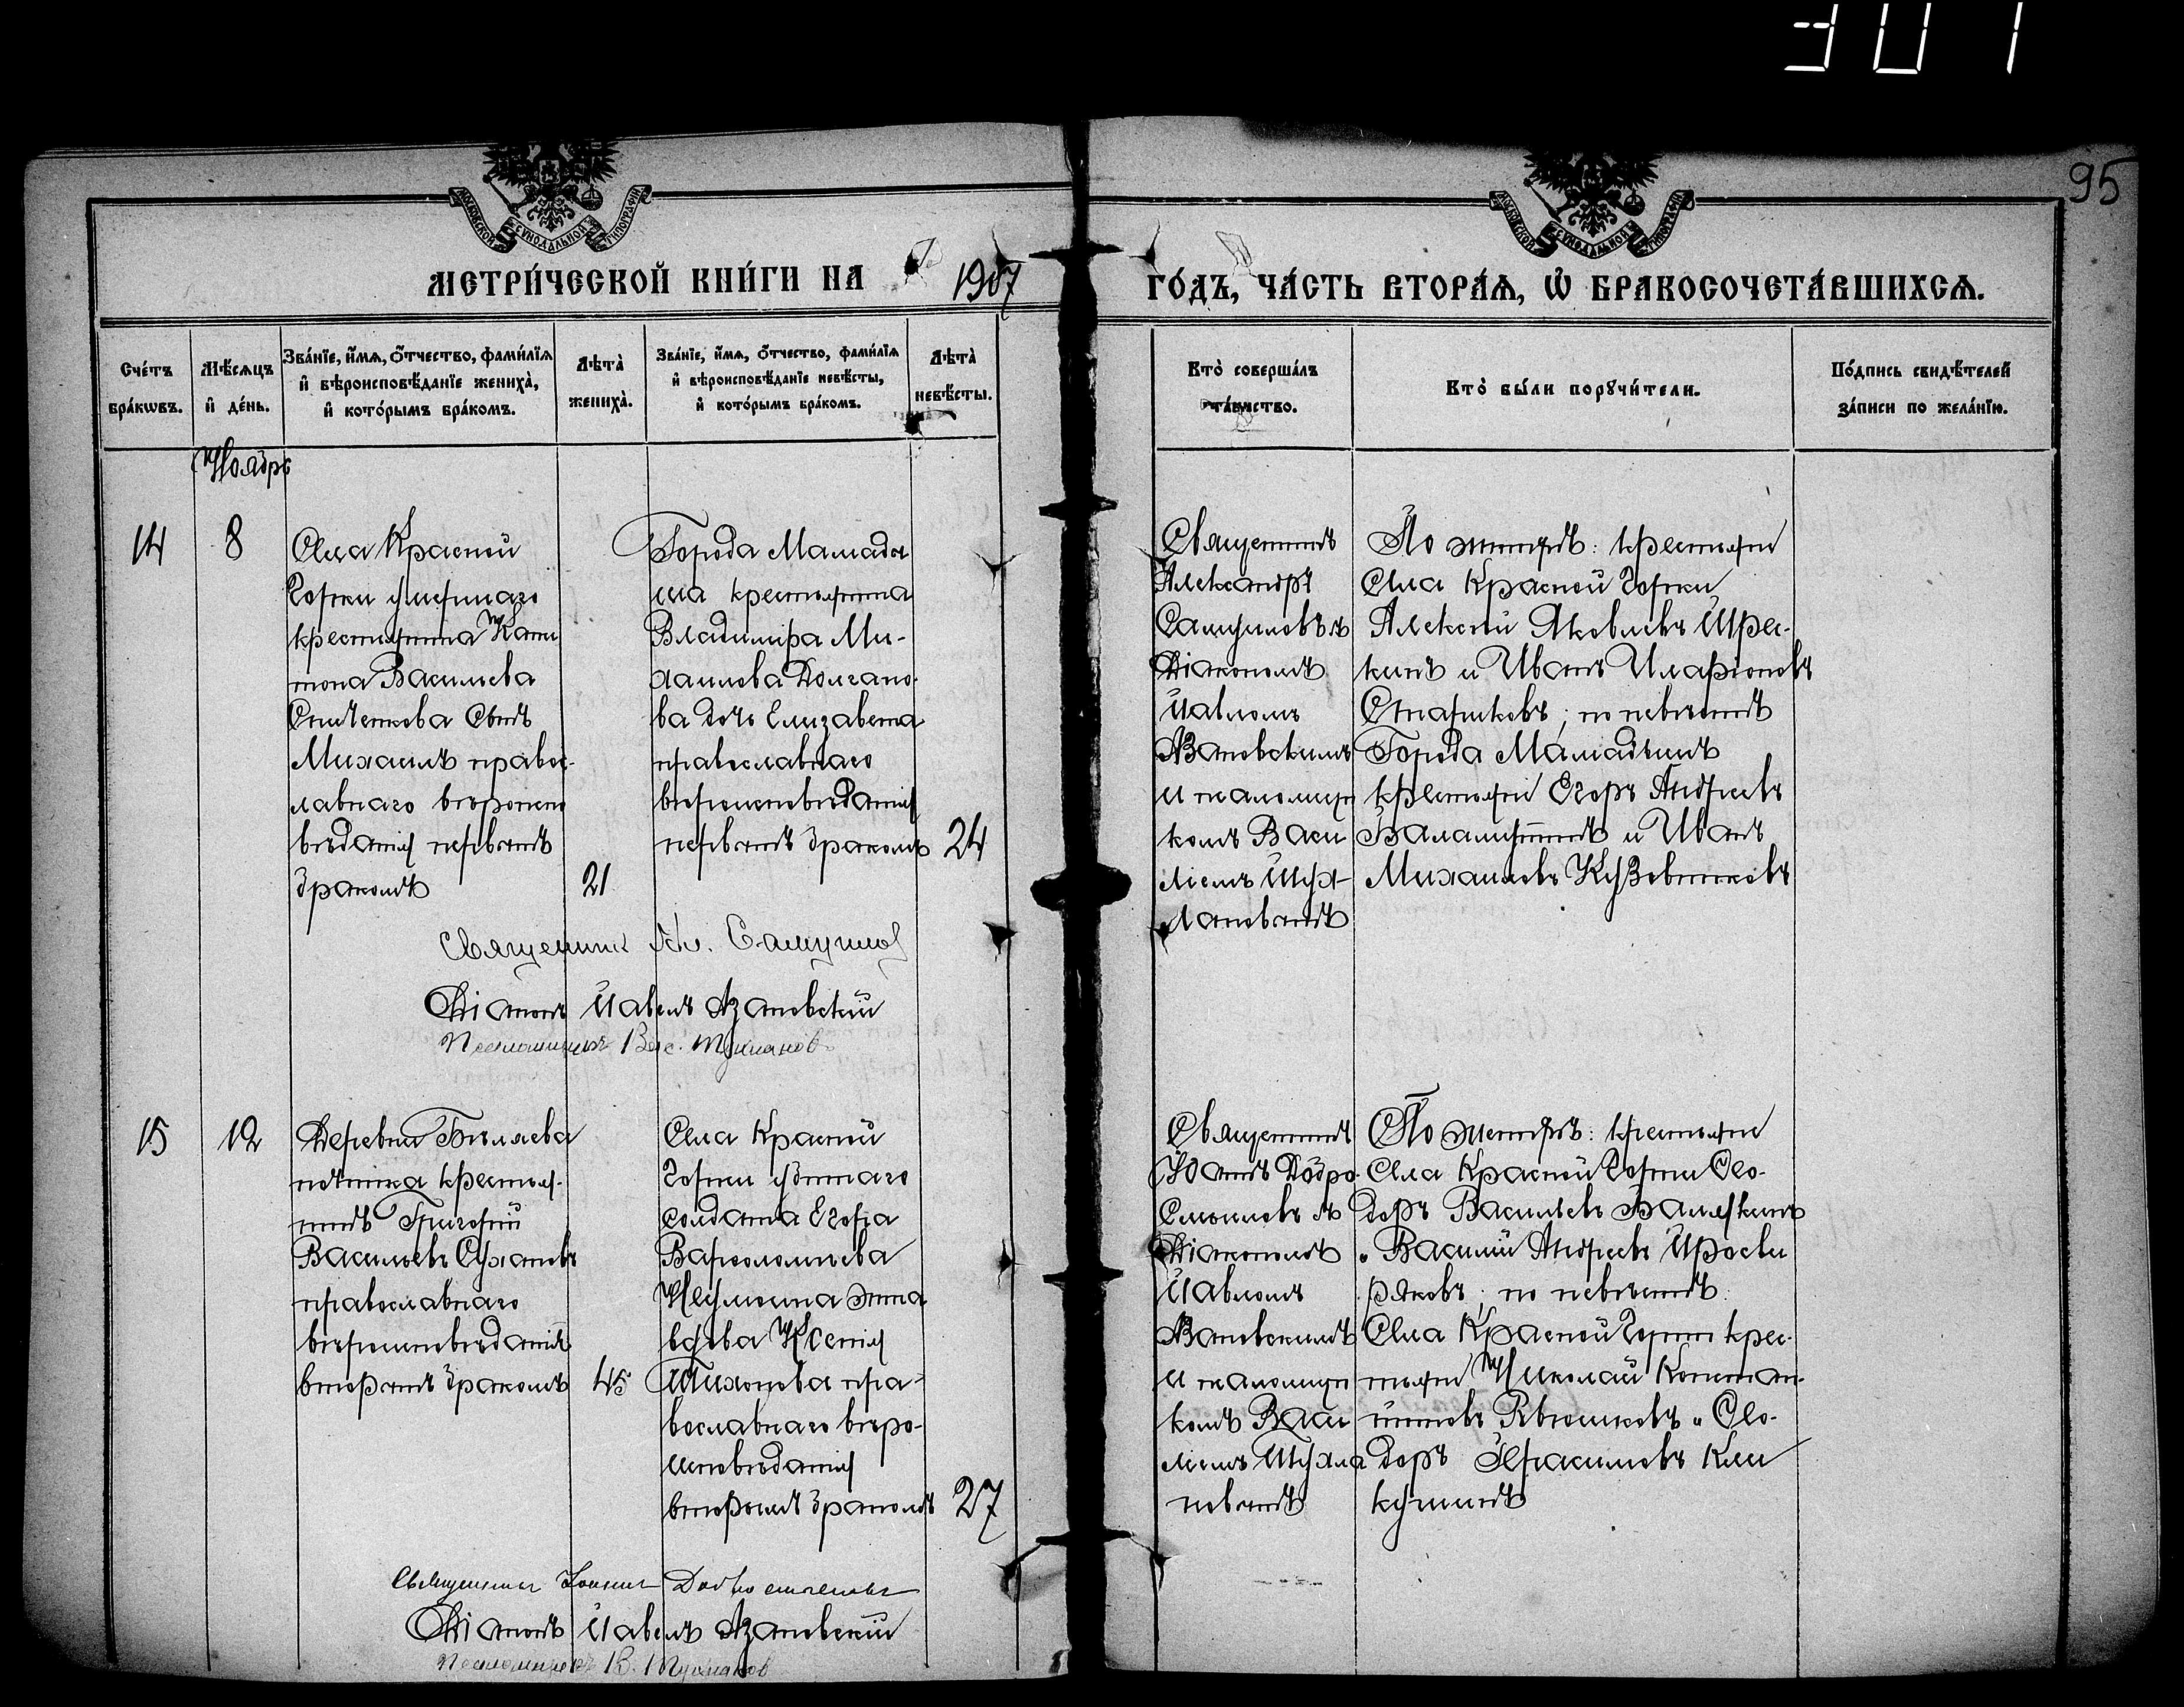 301
95
МОСКОВСКОЙ СѴНОДАЛЬНОЙ ТИПОГРАФІИ
МОСКОВСКОЙ СѴНОДАЛЬНОЙ ТИПОГРАФІИ
МЕТРИ́ЧЕСКОЙ КНИ́ГИ НА 1907
ГО́ДЪ, ЧА́СТЬ ВТОРА́Ѧ, Ѡ БРАКОСОЧЕТА́ВШИХСѦ.
Сче́тъ
бра́кѡвъ.
Мѣ́сѧцъ
и҆ де́нь.
Зва́нїе, и҆́мѧ, ѻ҆́тчество, фами́лїѧ
и҆ вѣроисповѣ́данїе жениха̀,
и҆ кото́рымъ бра́комъ.
Лѣта̀
жениха̀.
Зва́нїе, и҆́мѧ, ѻ҆́тчество, фами́лїѧ
и҆ вѣроисповѣ́данїе невѣ́сты,
и҆ кото́рымъ бра́комъ.
Лѣта̀
невѣ́сты.
Кто̀ соверша́лъ
та́инство.
Кто̀ бы́ли порꙋчи́тели.
По́дпись свидѣ́телей
за́писи по жела́нїю.
Ноябрь
14
8
Села Красной
Горки умершаго
крестьянина Капи
тона Васильева
сынъ
Михаилъ правос-
лавнаго вѣроиспо
вѣданія первымъ
бракомъ
21
Города Мамады
ша крестьянина
Владимира Ми-
хаилова Долгано-
ва дочь Елизавета
православнаго
вѣроисповѣданія
первымъ бракомъ
24
Священникъ
Александръ
Самуиловъ съ
Діакономъ
Павломъ
Азановскимъ
и псаломщи
комъ Васи
ліемъ Тух-
лановымъ
По женихѣ: крестьяне
Села Красной Горки
Алексѣй Яковлевъ
и Иванъ Иларіоновъ
Стариковъ; по невѣстѣ
Города Мамадыша
крестьяне Егоръ Андреевъ
и Иванъ
Михаиловъ Кузовниковъ
Священникъ Ал. Самуилов
Діаконъ Павелъ Азановскій
Псаломщикъ Вас. Тухланов
15
12
Деревни Бѣляева
починка крестья-
нинъ Григорій
Васильевъ
православнаго
вѣроисповѣданія
вторымъ бракомъ
45
Села Красной
Горки убитаго
солдата Егора
Варѳоломѣева
жена
вдова Ксенія
Тихонова пра-
вославнаго вѣро-
исповѣданія
вторымъ бракомъ
27
Священникъ
Іоаннъ Добро-
смысловъ съ
Діакономъ
Павломъ
Азановскимъ
и псаломщи
комъ Васи
ліемъ Тухла
новымъ
По женихѣ: крестьяне
Села Красной Горки Ѳео-
доръ Васильевъ
и Василій Андреевъ Просви
ряковъ; по невѣстѣ:
Села Красной Горки крес-
тьяне Николай Констан-
тиновъ и Ѳео-
доръ Герасимовъ
Священникъ Іоаннъ Добросмысловъ
Діаконъ Павелъ Азановскій
Псаломщикъ В. Тухланов